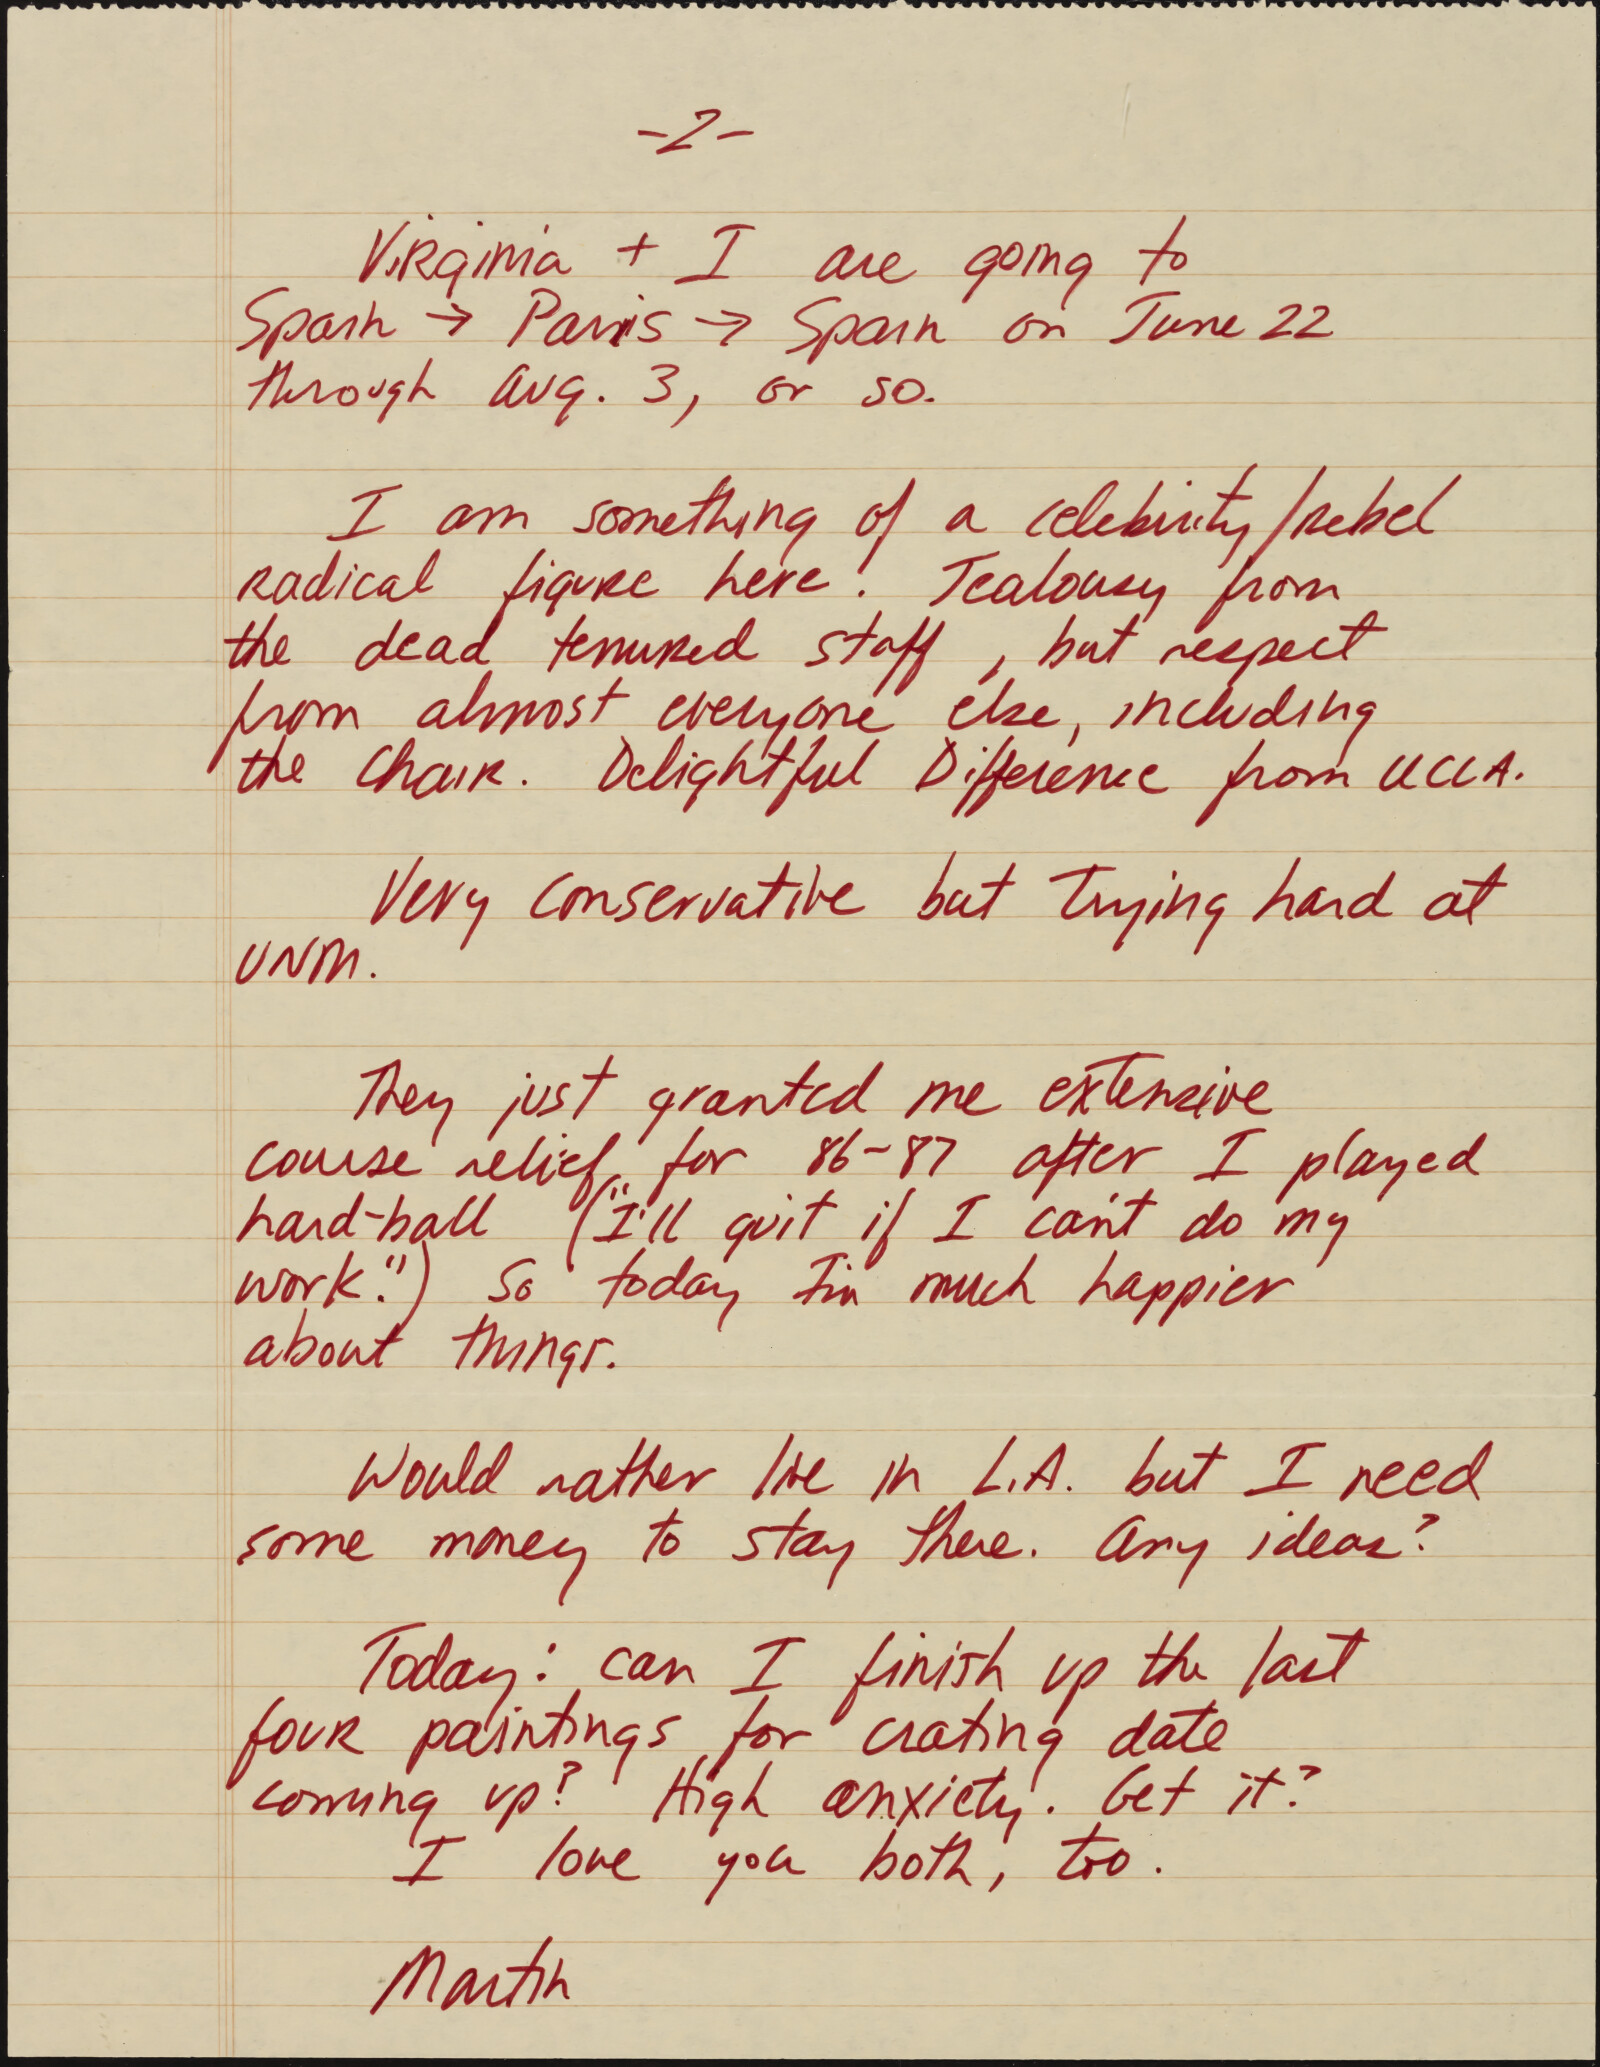 -2-
Virginia + I are going to
Spain → Paris → Spain on June 22
through Aug. 3, or so.
I am something of a celebrity/rebel
radical figure here. Jealousy from
the dead tenured staff, but respect
from almost everyone else, including
the Chair. Delightful Difference from UCLA.
Very conservative but trying hard at
UNM.
They just granted me extensive
course relief for 86-87 after I played
hard-ball ("I'll quit if I can't do my
work.") So today I'm much happier
about things.
Would rather live in L.A. but I need
some money to stay there. Any ideas?
Today: can I finish up the last
four paintings for crating date
coming up? High anxiety. Get it?
I love you both, too.
Martin